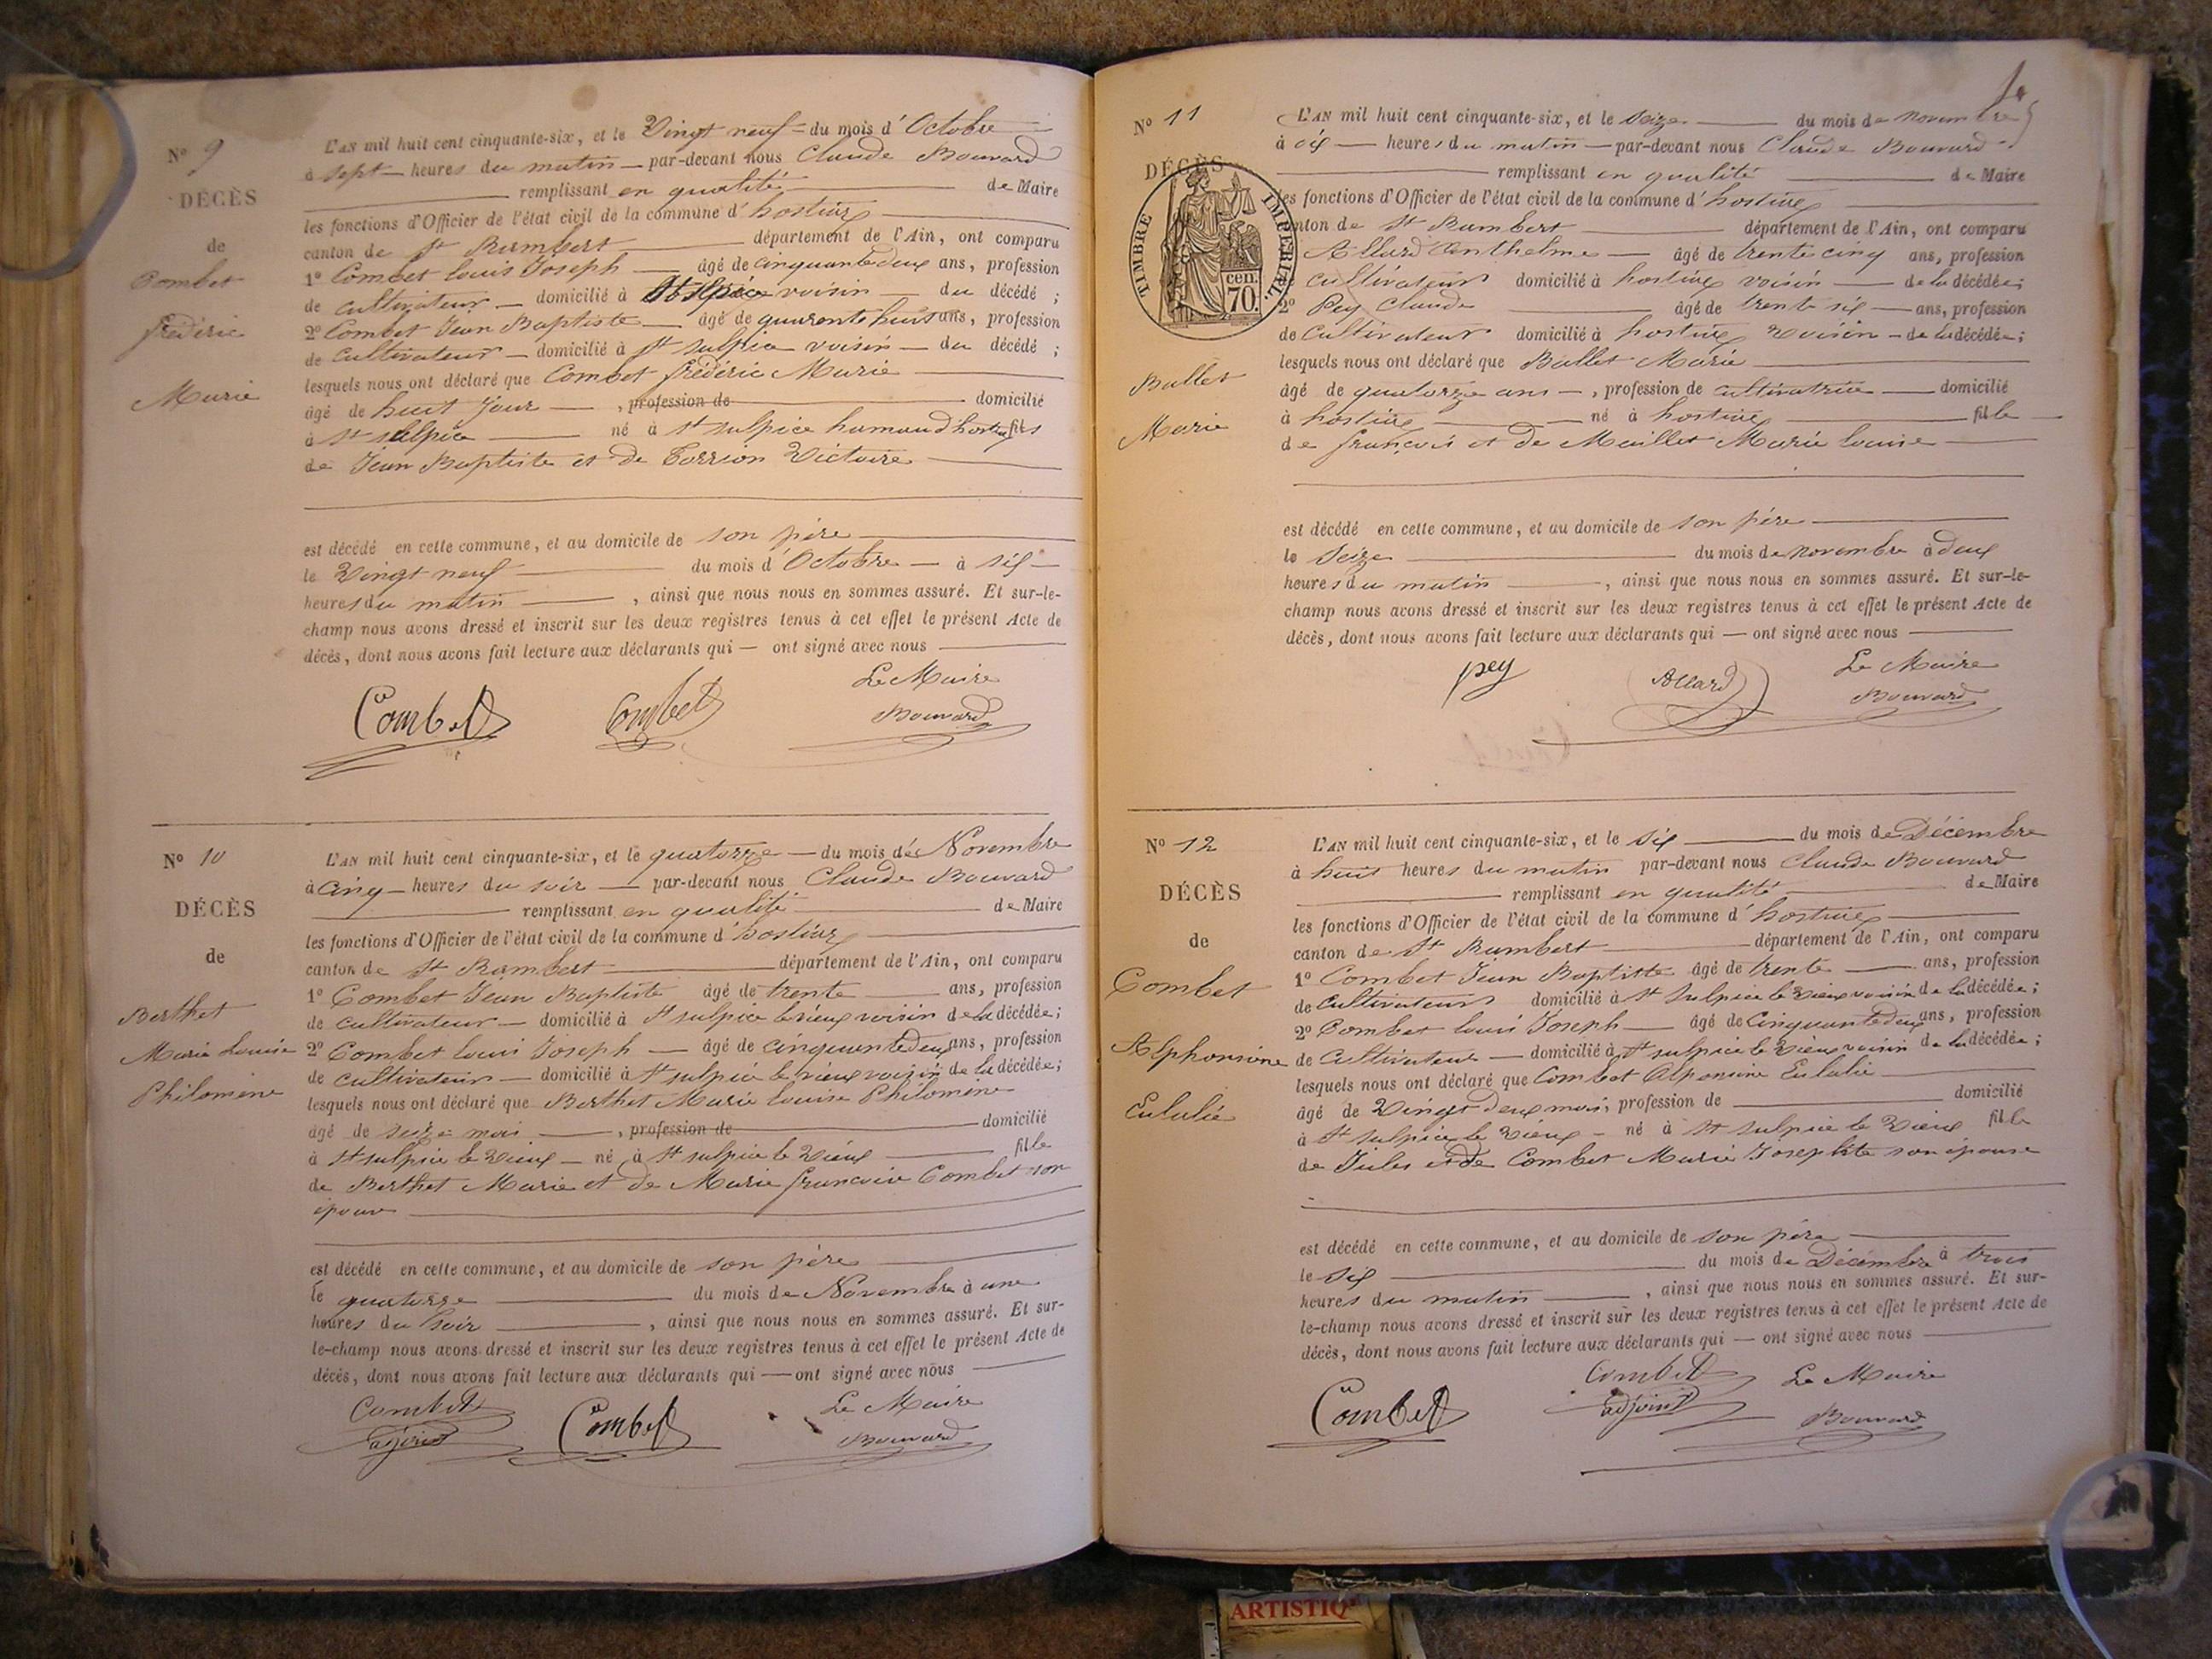 N° 9
DÉCÈS
de
Combet
frédéric
Marie
L'AN mil huit cent cinquante-six, et le Vingt neuf du mois d'Octobre
à sept heures du matin par-devant nous Claude Bouvard
remplissant en qualité de Maire
les fonctions d'Officier de l'état civil de la commune d'hostiaz
canton de St Rambert département de l'Ain, ont comparu
1° Combet louis Joseph âgé de cinquante deux ans, profession
de cultivateur domicilié à voisin du décédé ;
2° Combet Jean Baptiste âgé de quarente huit ans, profession
de cultivateur domicilié à st sulpice voisin du décédé ;
lesquels nous ont déclaré que Combet frédéric Marie
âgé de huit jour , profession de domicilié
à st sulpice né à st sulpice hamaud hostiaz fils
de Jean Baptiste et de Torrion Victoire
est décédé en cette commune, et au domicile de son père
le Vingt neuf du mois d'Octobre à six
heures du matin , ainsi que nous nous en sommes assuré. Et sur-le-
champ nous avons dressé et inscrit sur les deux registres tenus à cet effet le présent Acte de
décès, dont nous avons fait lecture aux déclarants qui — ont signé avec nous
Combet Combet Le Maire
Bouvard
N° 10
DÉCÈS
de
Berthet
Marie Louise
Philomine
L'AN mil huit cent cinquante-six, et le quatorze du mois de Novembre
à cinq heures du soir par-devant nous Claude Bouvard
remplissant en qualité de Maire
les fonctions d'Officier de l'état civil de la commune d'hostiaz
canton de St Rambert département de l'Ain, ont comparu
1° Combet Jean Baptiste âgé de trente ans, profession
de cultivateur domicilié à st sulpice le vieux voisin de la décédée ;
2° Combet louis Joseph âgé de cinquante deux ans, profession
de cultivateur domicilié à st sulpice le vieux voisin de la décédée ;
lesquels nous ont déclaré que Berthet Marie louise Philomine
âgé de seize mois , profession de domicilié
à st sulpice le Vieux né à st sulpice le Vieux fille
de Berthet Marie et de Marie francoise Combet son
épouse
est décédé en cette commune, et au domicile de son père
le quatorze du mois de Novembre à une
heures du soir , ainsi que nous nous en sommes assuré. Et sur-
le-champ nous avons dressé et inscrit sur les deux registres tenus à cet effet le présent Acte de
décès, dont nous avons fait lecture aux déclarants qui — ont signé avec nous
Combet Combet Le Maire
adjoint Bouvard
N° 11
DÉCÈS
TIMBRE IMPÉRIAL.
cen. 70.
Ballet
Marie
L'AN mil huit cent cinquante-six, et le seize du mois de novembre
à six heures du matin par-devant nous Claude Bouvard
remplissant en qualité de Maire
les fonctions d'Officier de l'état civil de la commune d'hostiaz
canton de St Rambert département de l'Ain, ont comparu
Allard Anthelme âgé de trente cinq ans, profession
cultivateur domicilié à hostiaz voisin de la décédée ;
2° Pey Claude âgé de trente six ans, profession
de Cultivateur domicilié à hostiaz voisin de la décédée ;
lesquels nous ont déclaré que Ballet Marie
âgé de quatorze ans , profession de cultivatrice domicilié
à hostiaz né à hostiaz fille
de françois et de Maillet Marie louise
est décédé en cette commune, et au domicile de son père
le seize du mois de novembre à deux
heures du matin , ainsi que nous nous en sommes assuré. Et sur-le-
champ nous avons dressé et inscrit sur les deux registres tenus à cet effet le présent Acte de
décès, dont nous avons fait lecture aux déclarants qui — ont signé avec nous
pey Allard Le Maire
Bouvard
N° 12
DÉCÈS
de
Combet
Alphonsine
Eulalie
L'AN mil huit cent cinquante-six, et le six du mois de Décembre
à huit heures du matin par-devant nous Claude Bouvard
remplissant en qualité de Maire
les fonctions d'Officier de l'état civil de la commune d'hostiaz
canton de St Rambert département de l'Ain, ont comparu
1° Combet Jean Baptiste âgé de trente ans, profession
de cultivateur domicilié à st sulpice le vieux voisin de la décédée ;
2° Combet louis Joseph âgé de cinquante deux ans, profession
de Cultivateur domicilié à st sulpice le Vieux voisin de la décédée ;
lesquels nous ont déclaré que Combet Alponsine Eulalie
âgé de Vingt deux mois, profession de domicilié
à st sulpice le Vieux né à st sulpice le Vieux fille
de Jules et de Combet Marie Josephte son épouse
est décédé en cette commune, et au domicile de son père
le six du mois de Décembre à trois
heures du matin , ainsi que nous nous en sommes assuré. Et sur-
le-champ nous avons dressé et inscrit sur les deux registres tenus à cet effet le présent Acte de
décès, dont nous avons fait lecture aux déclarants qui — ont signé avec nous
Combet Combet Le Maire
adjoint Bouvard
ARTISTIQ